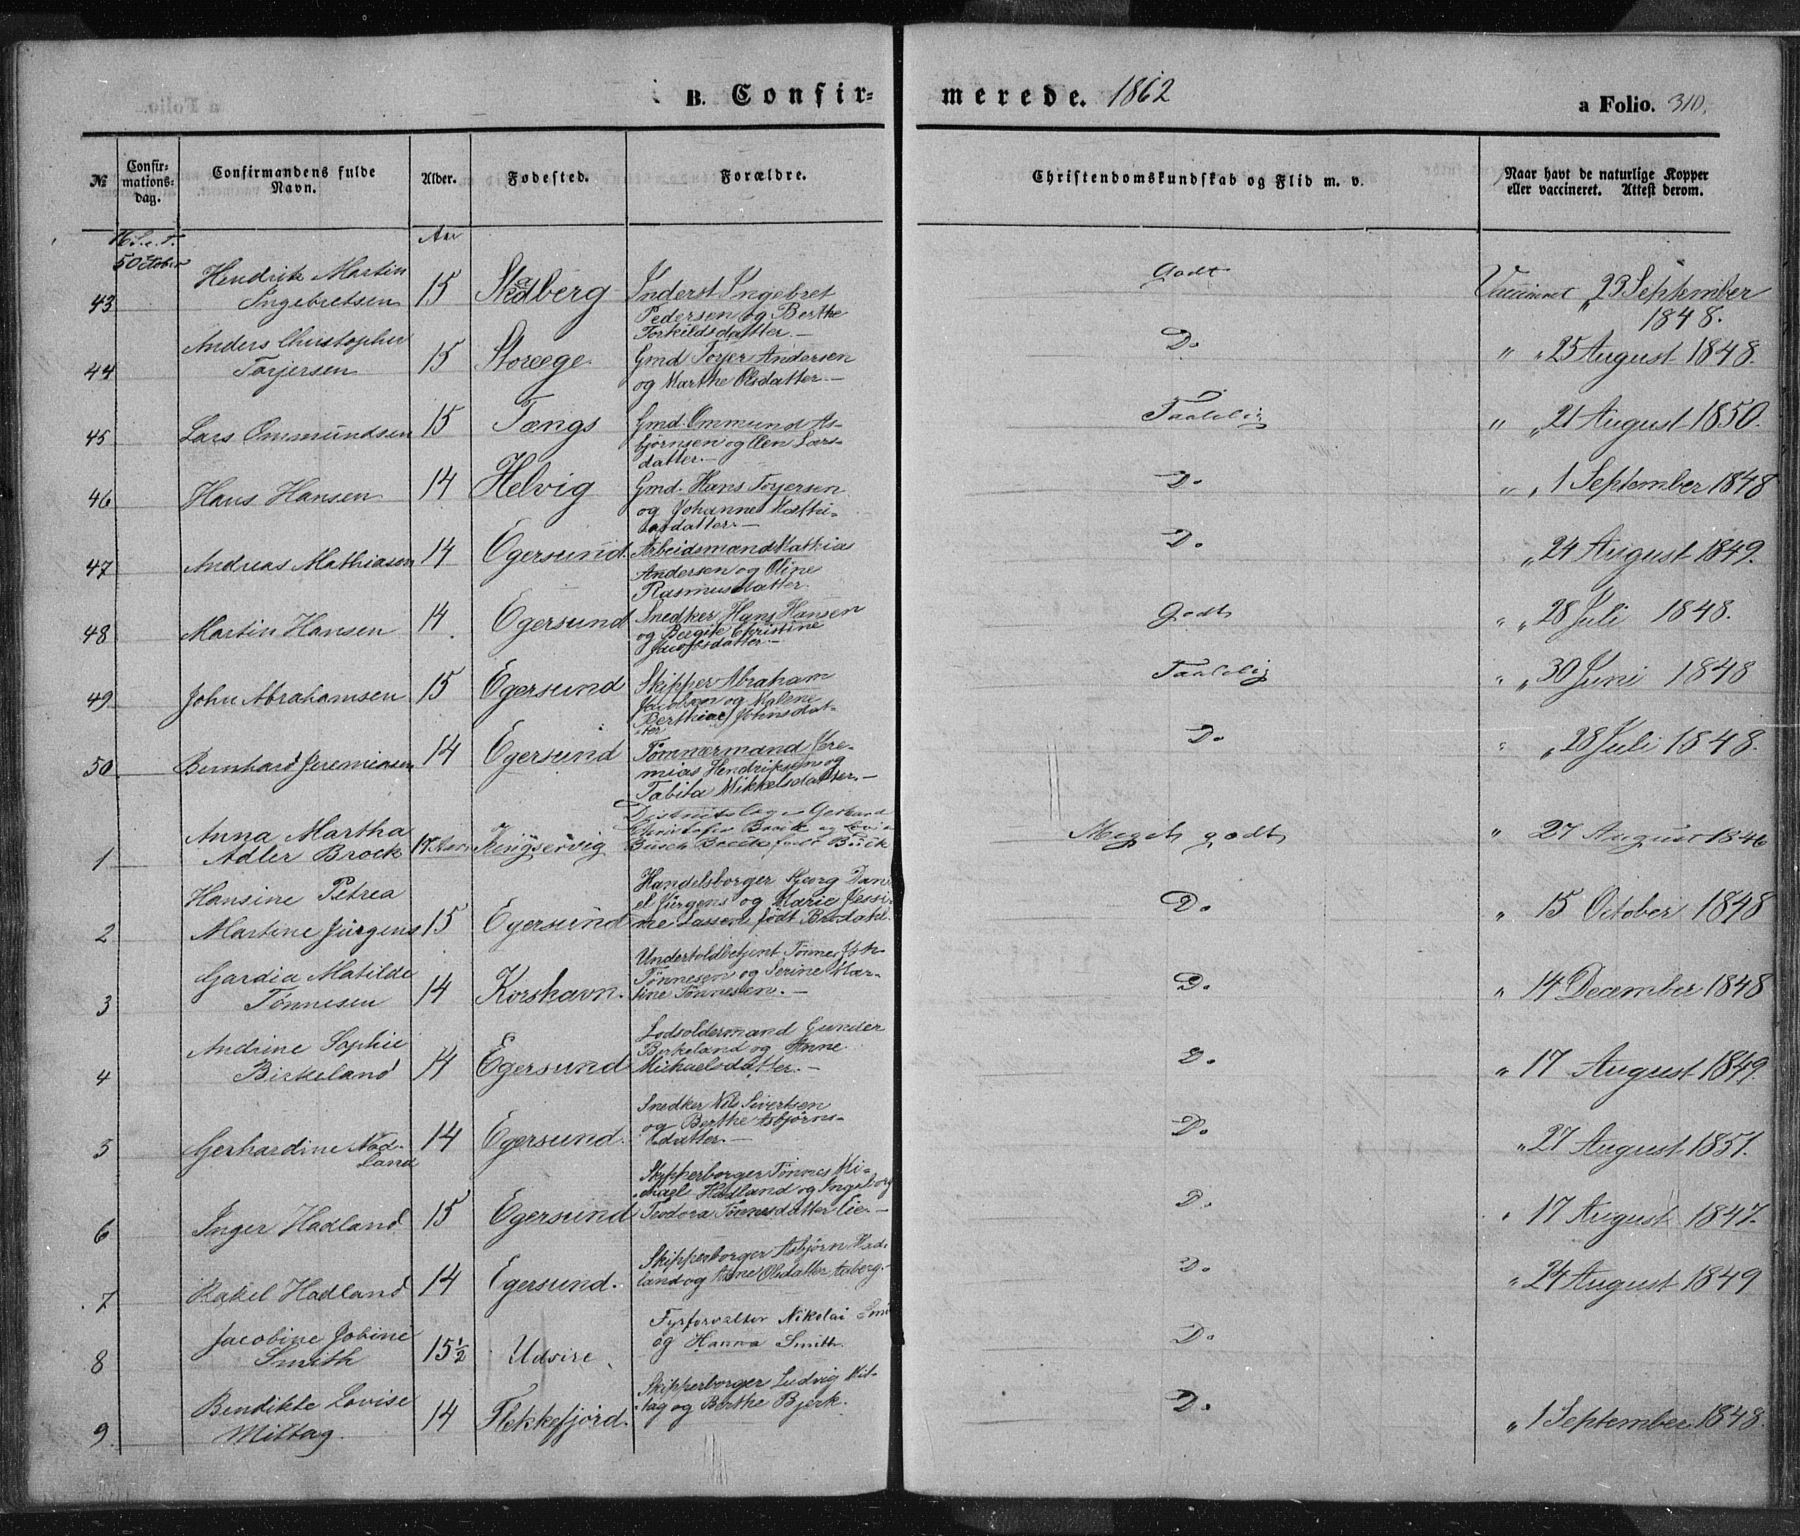 B. Confir=
merede. 1862
a Folio. 310.
№
Confir=
mations=
dag.
Confirmandens fulde
Navn.
Alder.
Fødested.
Forældre.
Christendomskundskab og Flid m. v.
Naar havt de naturlige Kopper
eller vaccineret. Attest derom.
16 S. e. T.
5 October
Aar
43
Hendrik Martin
Ingebretsen
15
Inderst Ingebret
Pedersen og Berthe
Torkildsdatter.—
Godt
Vaccineret 23 September
1848.
44
Anders Christopher
Torjersen
15
Storæge
Gmd Tojer Andersen
og Marthe Olsdatter.—
Do
" " 25 August 1848.
45
Lars Ommundsen
15
Tængs
Gmd. Ommund As-
bjørnsen og Elen Lars-
datter.—
Taalelig
" " 21 August 1850.
46
Hans Hansen
14
Helvig
Gmd. Hans Tojersen
og Johanne Mathi-
asdatter.—
Do
" " 1 September 1848
47
Andreas Mathiasen
14
Egersund.
Arbeidsmand Mathias
Andersen og Oline
Rasmusdatter
Do
" 24 August 1849.
48
Martin Hansen
14
Egersund
Snedker Hans Hansen
og Bergite Christine
Jacobsdatter.—
Godt
" " 28 Juli 1848.
49
John Abrahamsen
15
Egersund
Skipper Abraham
Jacobsen og Malene
Berthea Johnsdat-
ter
Taalelig
" " 30 Juni 1848
50
Bernhard Jeremiasen
14
Egersund
Tømmermand Jere-
mias Hendriksen og
Tabita Mikkelsdatter.—
Do
" " 28 Juli 1848.
1
Anna Martha
Adler Brock
Kingservig
Meget godt
" 27 August 1846
2
Hansine Petrea
Martine Jürgens
15
Egersund
Handelsborger Georg Dani-
el Jürgens og Marie Jessi-
ne Lassen født Brodahl.
Do
" 15 October 1848
3
Gardia Matilde
Tønnesen
14
Korshavn.
Undertoldbetjent Tønnes Joh.
Tønnesen og Serine Mar-
tine Tønnesen.—
Do
" 14 December 1848
4
Andrine Sophie
Birkeland
14
Egersund
Lodsoldermand Gunder
Birkeland og Anne
Michaelsdatter.—
Do
" 17 August 1849.
5
Gerhardine Nød-
land
14
Egersund.
Snedker Nils Sivertsen
og Berthe Asbjørns-
datter.—
Do
" 27 August 1851.
6
Inger Hadland
15
Egersund
Skipperborger Tønnes Mi-
chael Hadland og Ingeborg
Teodora Tønnesdatter Eie—
Do
" 17 August 1847.
7
Rakel Hadland
14
Egersund.
Skipperborger Asbjørn Had-
land og Anne Olsdatter Aaberg.—
Do
" 24 August 1849
8
Jacobine Jobine
Smith
15½
Udvire
Fyrforvalter Nikolai Smi
og Hanna Smith.
Do
9
Bendikte Lovise
Mittag.
14
Flekkefjord.
Skipperborger Ludvig Mit-
tag og Berthe Bjerk.
Do
" 1 September 1848.